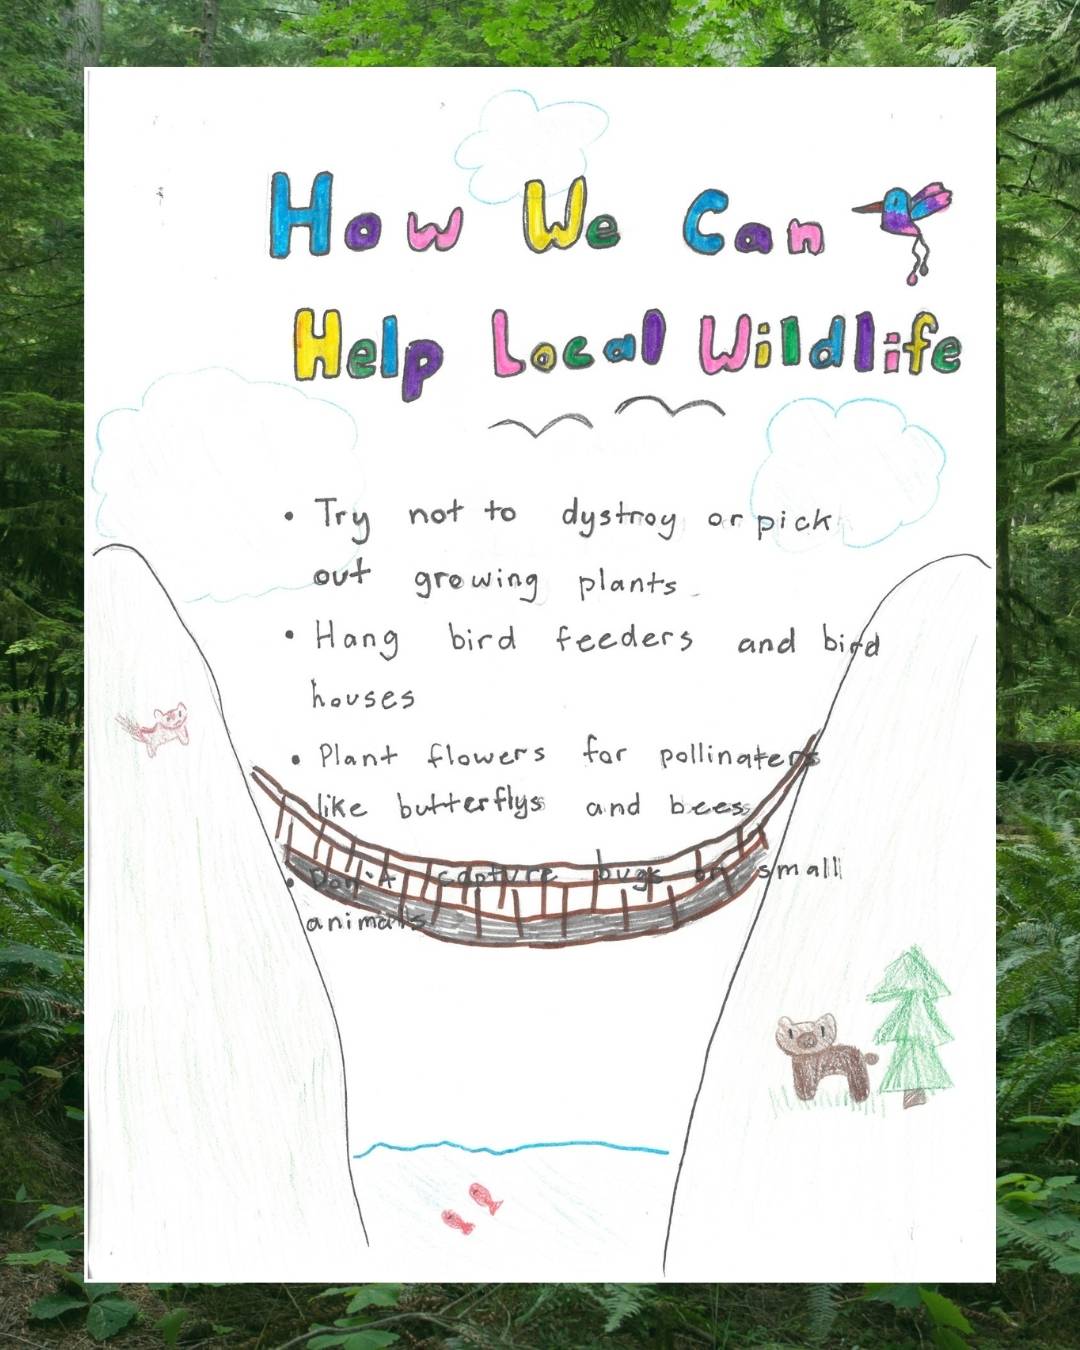 How We Can
Help Local Wildlife
• Try not to dystroy or pick
out growing plants.
• Hang bird feeders and bird
houses
• Plant flowers for pollinaters
like butterflys and bees
• Don't capture bugs or small
animals